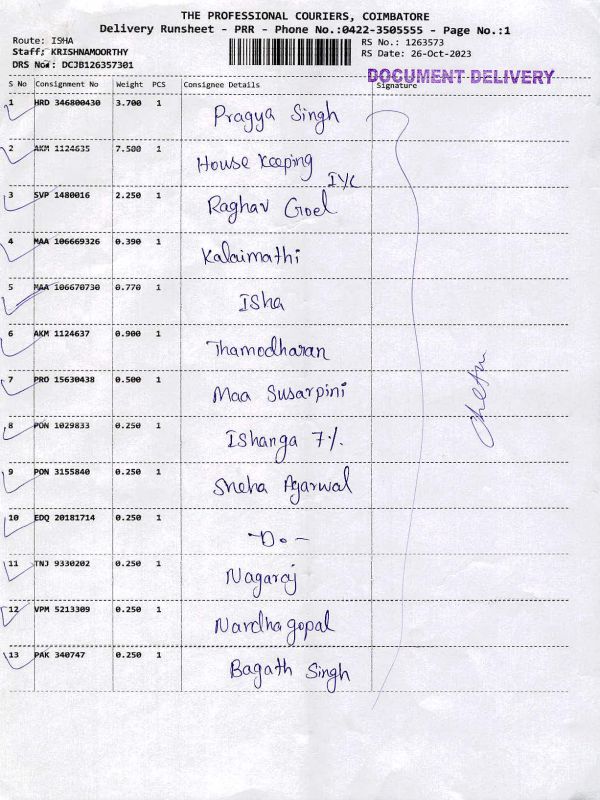 THE PROFESSIONAL COURIERS, COIMBATORE
Delivery Runsheet - PRR - Phone No.:0422-3505555 - Page No.:1
Route: ISHA
Staff: KRISHNAMOORTHY
DRS No.: DCJB126357301
RS No.: 1263573
RS Date: 26-Oct-2023
DOCUMENT DELIVERY
S No Consignment No Weight PCS Consignee Details Signature
1 HRD 346800430 3.700 1 Pragya Singh
2 AKM 1124635 7.500 1 House keeping IYC
3 SVP 1480016 2.250 1 Raghav Goel
4 MAA 106669326 0.390 1 Kalaimathi
5 MAA 106670730 0.770 1 ISha
6 AKM 1124637 0.900 1 Thamodharan
7 PRO 15630438 0.500 1 Maa Susarpini
8 PON 1029833 0.250 1 IShanga 7%.
9 PON 3155840 0.250 1 Sneha Agarwal
10 EDQ 20181714 0.250 1 -Do-
11 TNJ 9330202 0.250 1 Nagaraj
12 VPM 5213309 0.250 1 Nardhagopal
13 PAK 340747 0.250 1 Bagath Singh